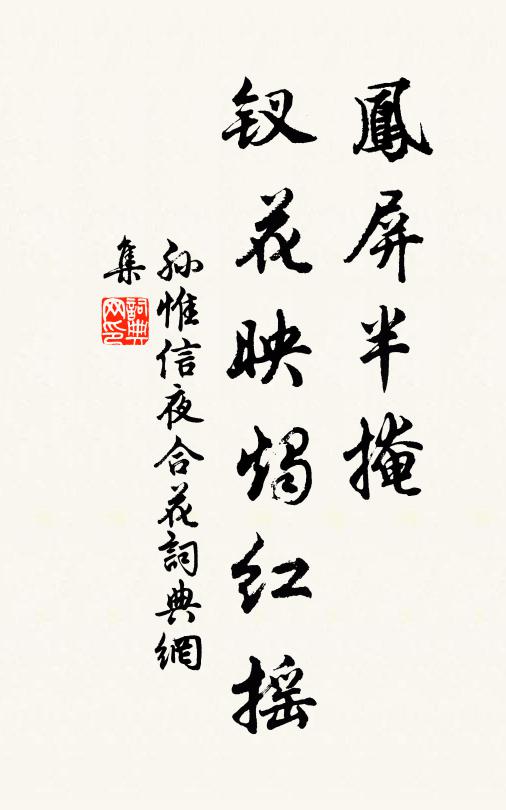 鳳屏半掩
釵花映燭紅搖
孫惟信夜合花詞典網
集
詞典網印